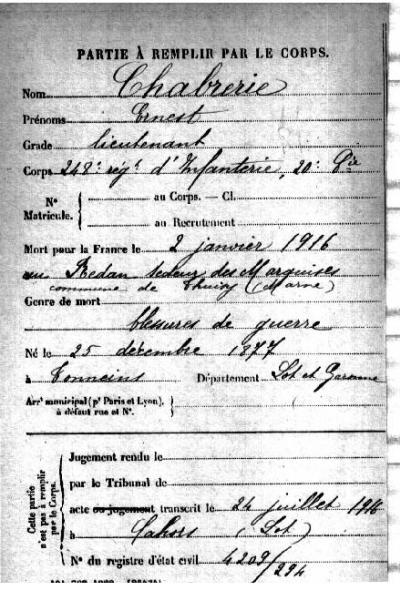 PARTIE À REMPLIR PAR LE CORPS.
Nom Chabrerie
Prénoms Ernest
Grade lieutenant
Corps 248e régt d'Infanterie, 20e Cie
N° Matricule. { au Corps. — Cl.
au Recrutement
Mort pour la France le 2 janvier 1916
au Redan secteur des Marquises
commune de Thuizy (Marne)
Genre de mort
blessures de guerre
Né le 25 décembre 1877
à Tonneins Département Lot et Garonne
Arrt municipal (pr Paris et Lyon), à défaut rue et N°. }
Cette partie n'est pas à remplir par le Corps.
Jugement rendu le
par le Tribunal de
acte ou jugement transcrit le 24 juillet 1916
à Cahors (Lot)
N° du registre d'état civil 4209/294